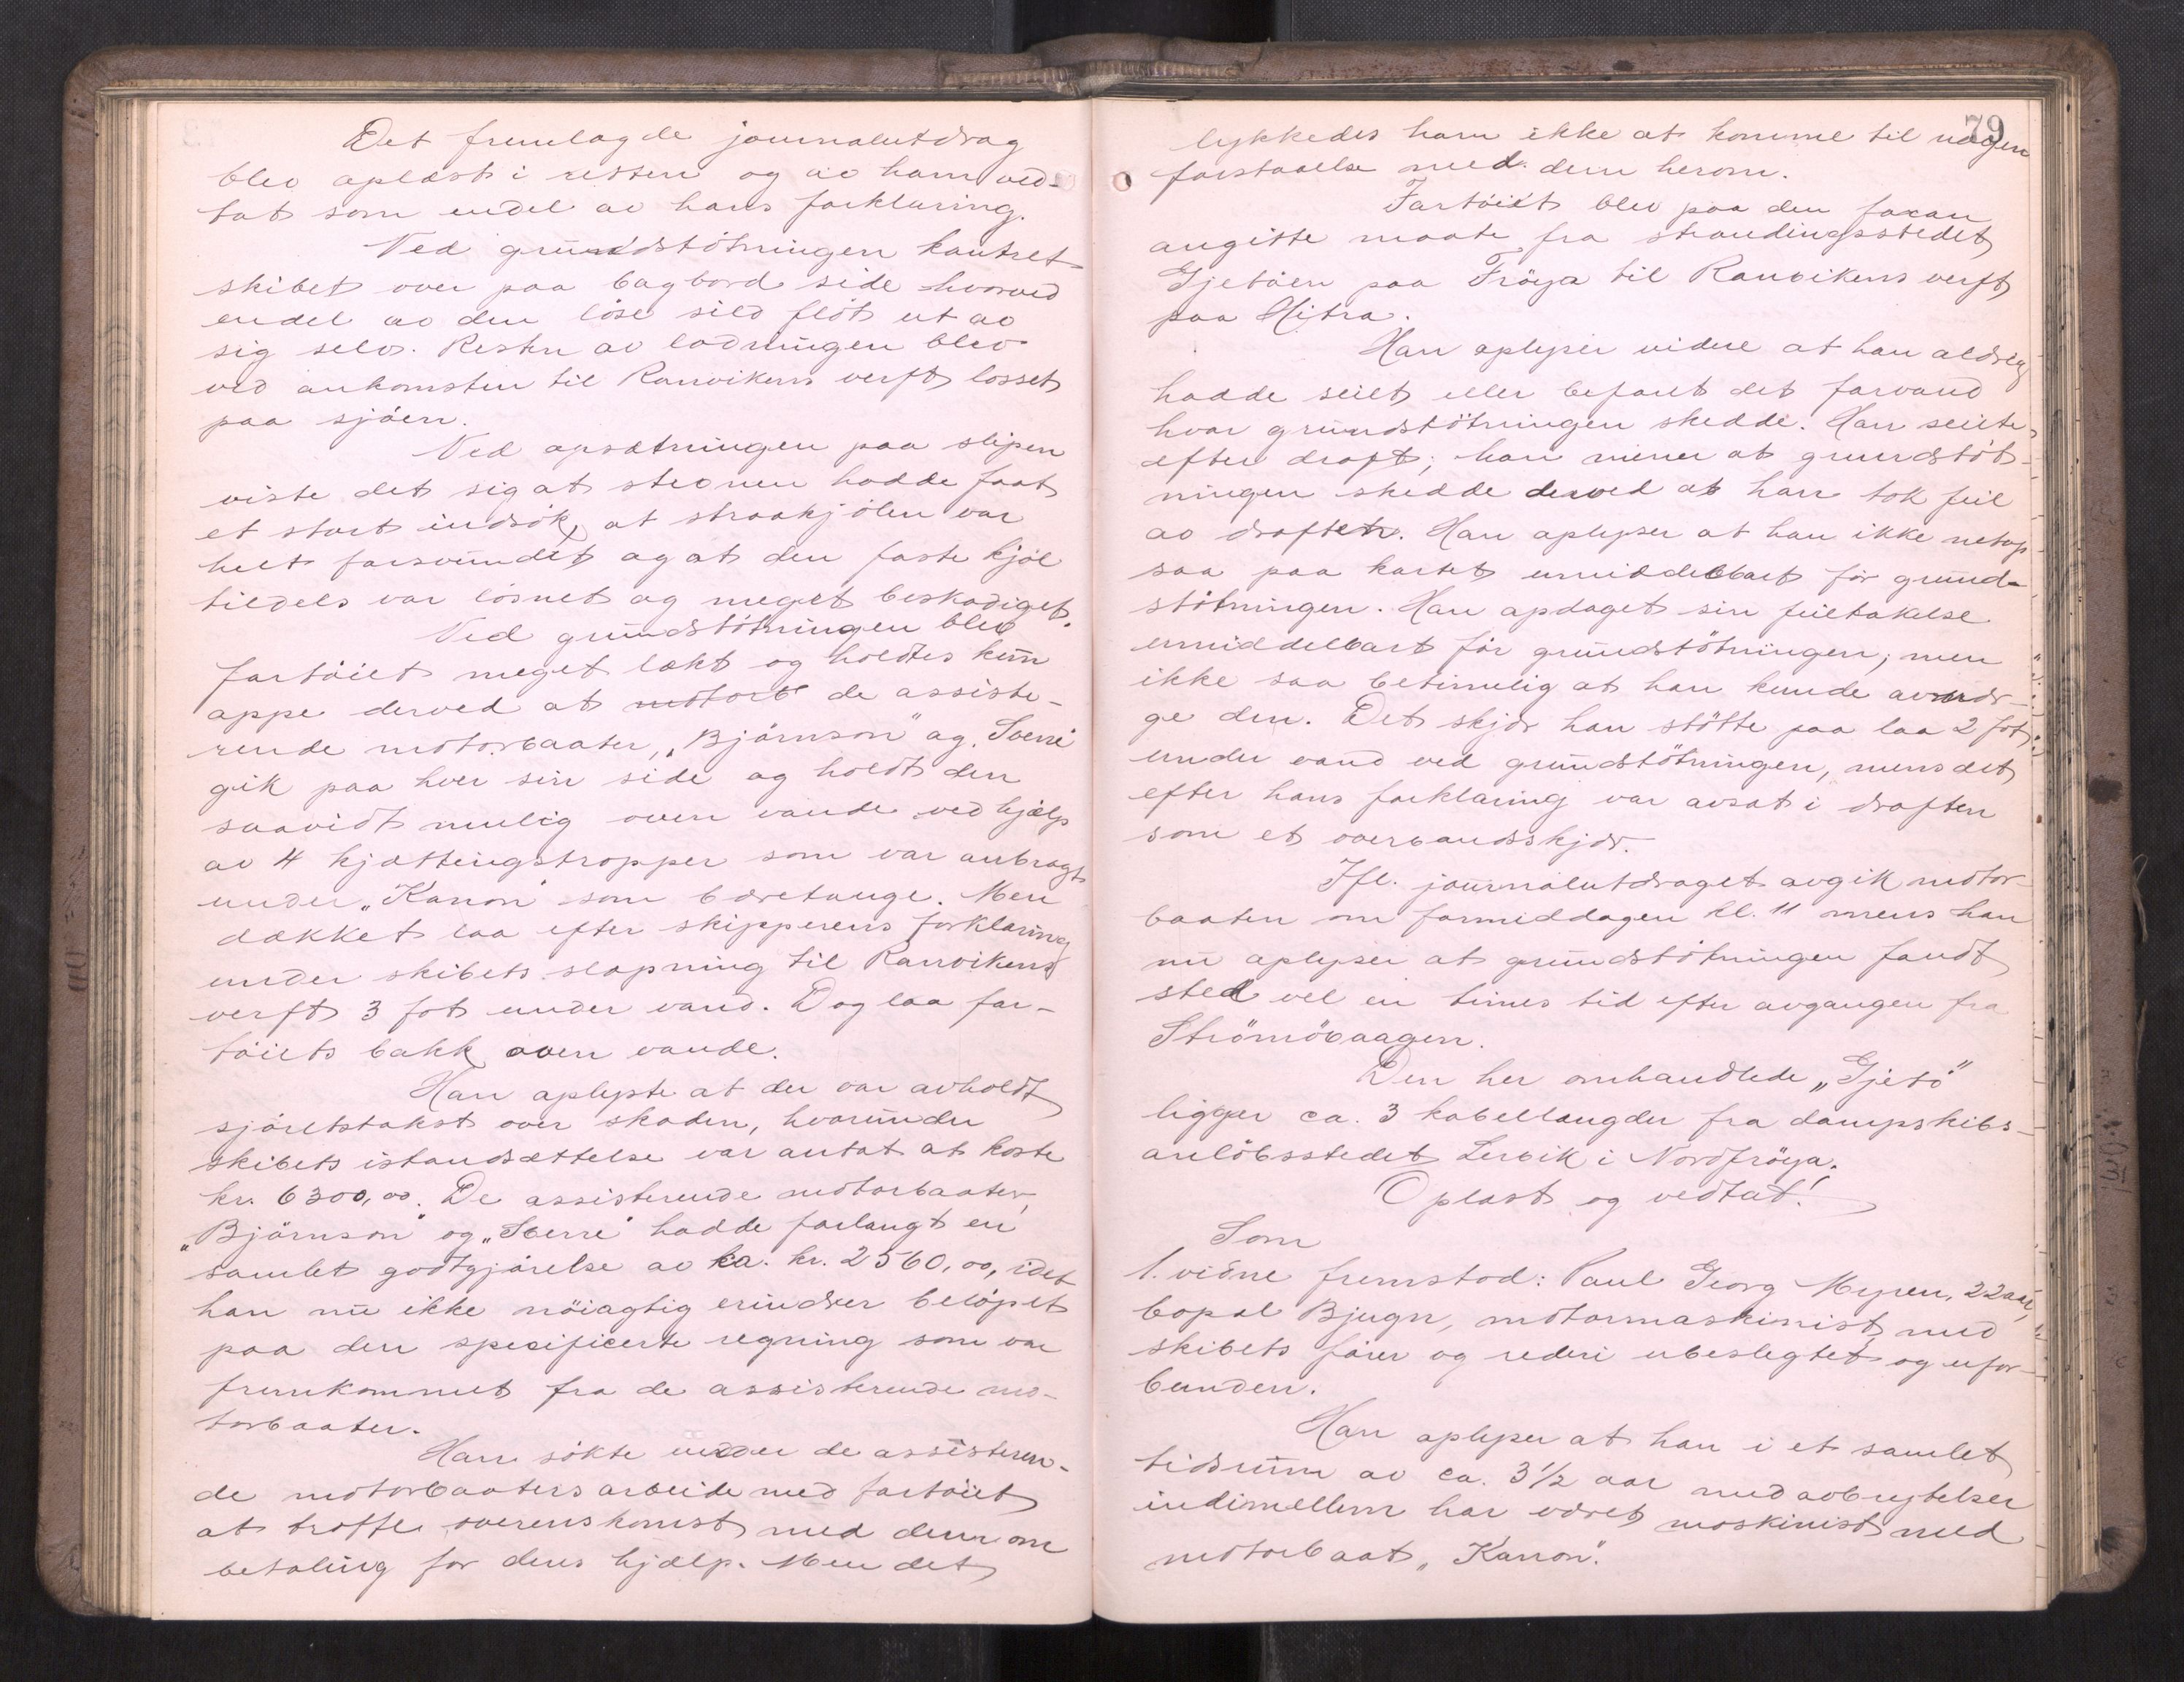 Det fremlagde journalutdrag
blev oplæst i retten og av ham ved-
tat som endel av hans forklaring.
Ved grundstötningen kantret
skibet over paa bagbord side hvorved
endel av den löse sild flöt ut av
sig selv. Resten av ladningen blev
ved ankomsten til Kanvikens verft losset
paa sjöen.
Ved opsætningen paa slipen
viste det sig at stevnen hadde faat
et stort indsök, at straakjölen var
helt forsvundet og at den faste kjöl
tildels var lösnet og meget beskadiget.
Ved grundstötningen blev
fartöiet meget lækt og holdtes kun
oppe derved at motorb de assiste-
rende motorbaater, "Björnson" og "Sverre"
gik paa hver sin side og holdt den
saavidt mulig oven vande ved hjælp
av 4 kjættingstropper som var anbragt
under "Kanon" som bæretauge. Men
dækket laa efter skipperens forklaring
under skibets slæpning til Kanvikens
verft 3 fot under vand. Dog laa far-
töiets bakk oven vande.
Han oplyste at der var avholdt
sjöretstakst over skaden, hvorunder
skibets istandsættelse var antat at koste
kr. 6300,00. De assisterende motorbaater,
"Björnson" og "Sverre" hadde forlangt en
samlet godtgjörelse av ca. kr. 2560,00, idet
han nu ikke nöiagtig erindrer belöpet
paa den specificerte regning som var
fremkommet fra de assisterende mo-
torbaater.
Han sökte under de assisteren-
de motorbaaters arbeide med fartöiet
at træffe overenskomst med dem om
betaling for dens hjælp. Men det
79
lykkedes ham ikke at komme til nogen
forstaaelse med dem herom.
Fartöiet blev paa den foran
angitte maate fra strandingsstedet
Gjetöen paa Fröya til Kanvikens verft
paa Hitra.
Han oplyser videre at han aldrig
hadde seilt eller befaret det farvand
hvor grundstötningen skedde. Han seilte
efter draft; han mener at grundstöt-
ningen skedde derved at han tok feil
av draften. Han oplyser at han ikke netop
saa paa kartet umiddelbart för grund-
stötningen. Han opdaget sin feiltakelse
umiddelbart för grundstötningen; men
ikke saa betimelig at han kunde avvær-
ge den. Det skjær han stötte paa laa 2 fot
under vand ved grundstötningen, mens det
efter hans forklaring var avsat i draften
som et overvandsskjær.
Ifl. journalutdraget avgik motor-
baaten om formiddagen kl. 11 mens han
nu oplyser at grundstötningen fandt
sted vel en times tid efter avgangen fra
Strömövaagen.
Den her omhandlede "Gjetö"
ligger ca. 3 kabellængder fra dampskibs-
anlöbsstedet Lervik i Nordfröya.
Oplæst og vedtat!
Som
1. vidne fremstod: Paul Georg Myren, 22 aar,
bopæl Bjugn, motormaskinist, med
skibets förer og rederi ubeslegtet og ufor-
bunden.
Han oplyser at han i et samlet
tidsrum av ca. 3½ aar med avbrytelser
indimellem har været maskinist med
motorbaat "Kanon".